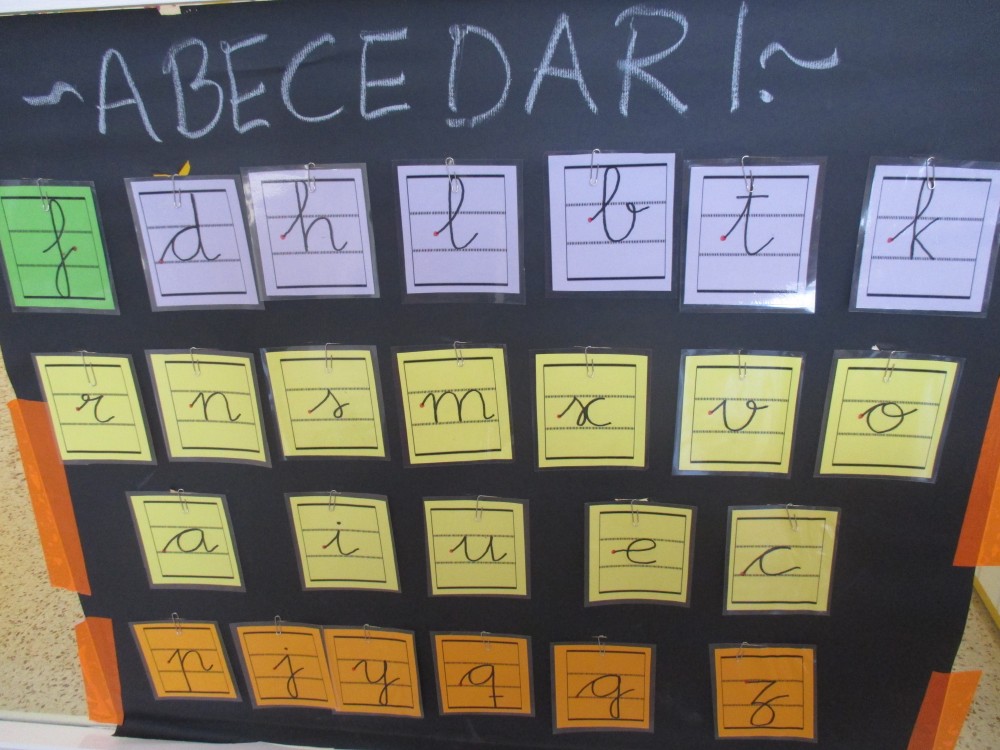 ~ABECEDARI~
f d h l b t k
r n s m x v o
a i u e c
p j y q g z